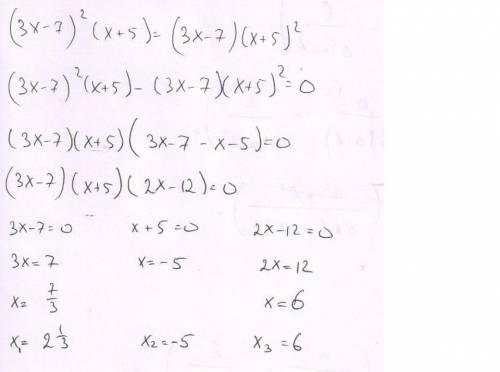 (3x-7)²(x+5)=(3x-7)(x+5)²
(3x-7)²(x+5)-(3x-7)(x+5)²=0
(3x-7)(x+5)(3x-7-x-5)=0
(3x-7)(x+5)(2x-12)=0
3x-7=0 x+5=0 2x-12=0
3x=7 x=-5 2x=12
x=7/3 x=6
x₁=2 1/3 x₂=-5 x₃=6